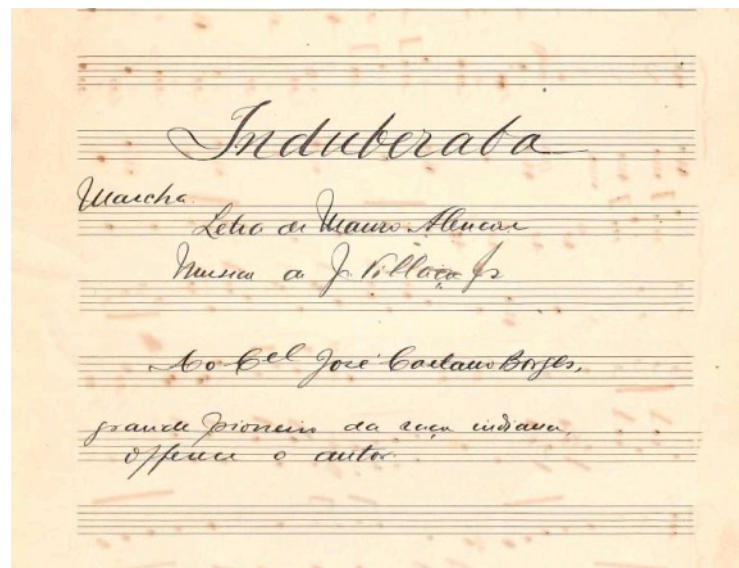 Induberaba
Marcha.
Letra de Mauro Alencar
Musica de J. Villaça Jr
Ao Cel José Caetano Borges,
grande pioneiro da raça indiana,
offerece o autor.